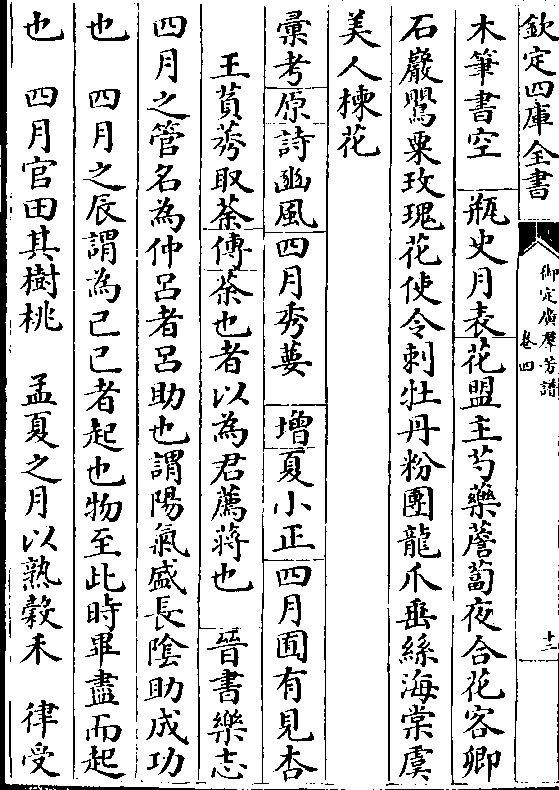 欽定四庫全書
御定廣羣芳譜
卷四
十二
木筆書空　瓶史月表花盟主芍藥薝蔔夜合花客卿
石巖罌粟玫瑰花使令刺牡丹粉團龍爪垂絲海棠虞
美人楝花
彚考原詩豳風四月秀葽　增夏小正四月囿有見杏
王萯莠取荼傳荼也者以為君薦蔣也　晉書樂志
四月之管名為仲呂者呂助也謂陽氣盛長陰助成功
也　四月之辰謂為巳巳者起也物至此時畢盡而起
也　四月官田其樹桃　孟夏之月以熟穀禾　律受